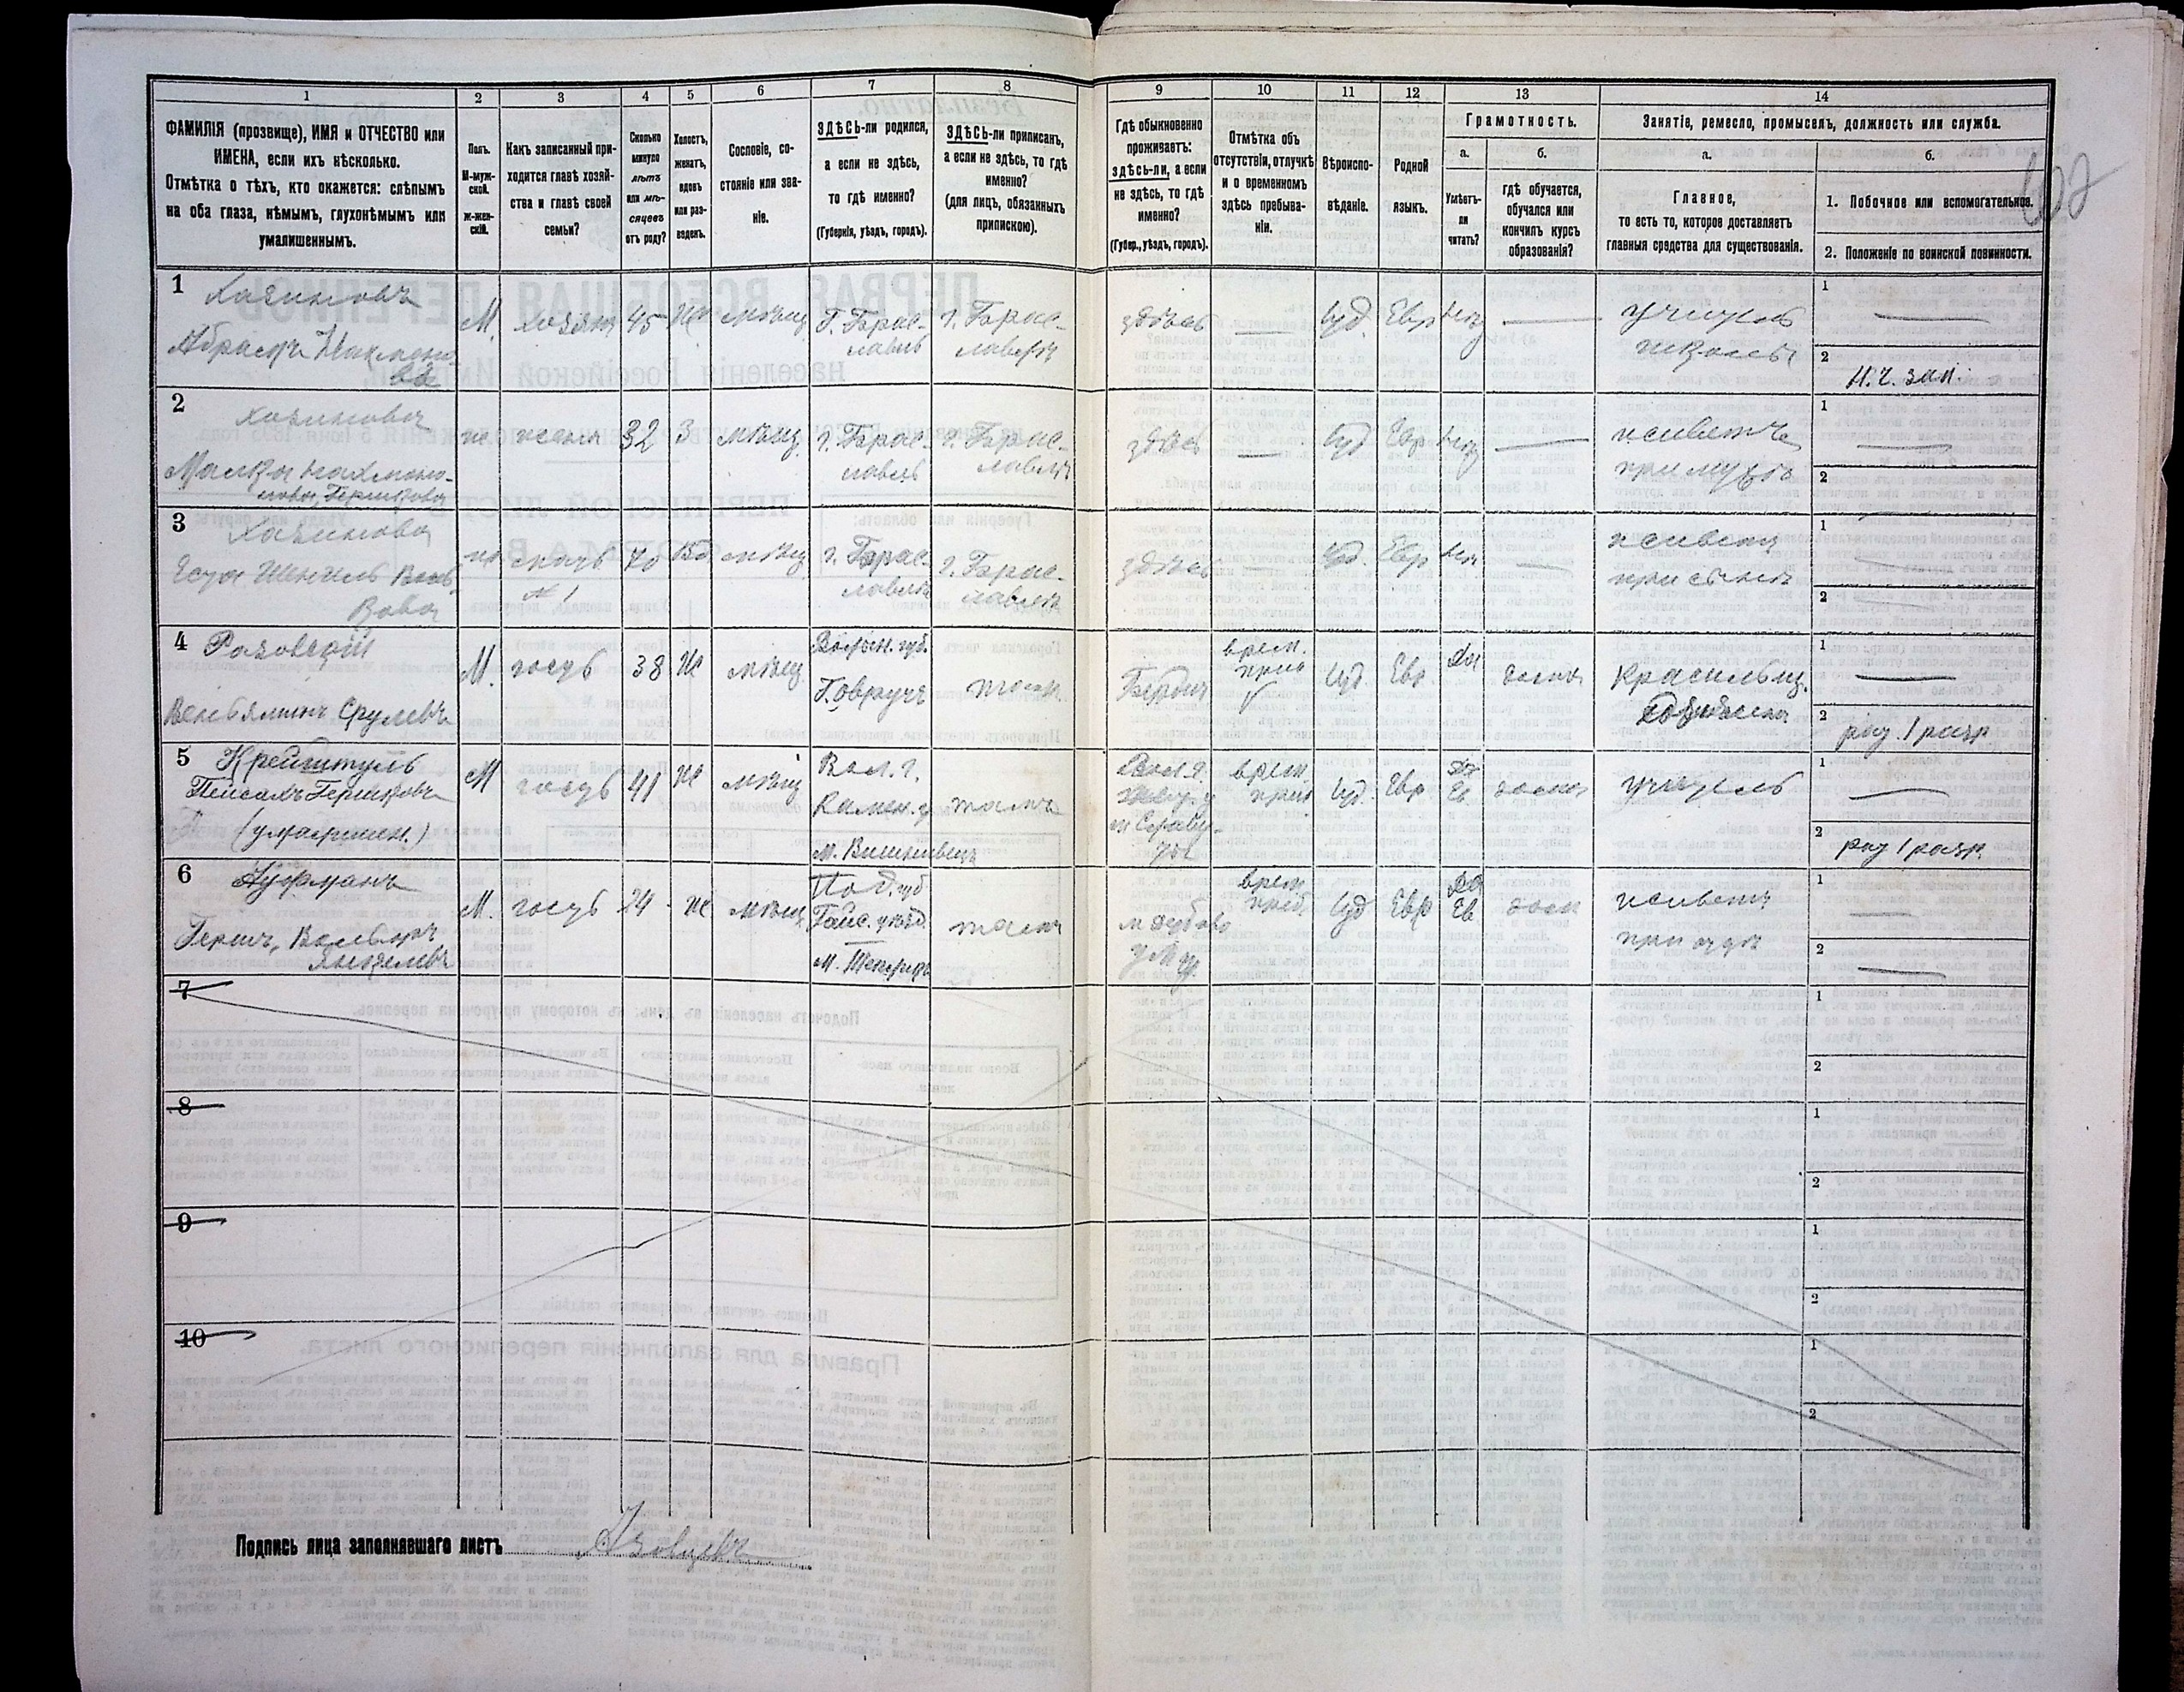 1
2
3
4
5
6
7
8
9
10
11
12
13
14
ФАМИЛІЯ (прозвище), ИМЯ и ОТЧЕСТВО или
ИМЕНА, если ихъ нѣсколько.
Отмѣтка о тѣхъ, кто окажется: слѣпымъ
на оба глаза, нѣмымъ, глухонѣмымъ или
умалишеннымъ.
Полъ.
М-муж-
ской.
ж-жен-
скій.
Какъ записанный при-
ходится главѣ хозяй-
ства и главѣ своей
семьи?
Сколько
минуло
лѣтъ
или мѣ-
сяцевъ
отъ роду?
Холостъ,
женатъ,
вдовъ
или раз-
веденъ.
Сословіе, со-
стояніе или зва-
ніе.
ЗДѢСЬ-ли родился,
а если не здѣсь,
то гдѣ именно?
(Губернія, уѣздъ, городъ).
ЗДѢСЬ-ли приписанъ,
а если не здѣсь, то гдѣ
именно?
(для лицъ, обязанныхъ
припискою).
Гдѣ обыкновенно
проживаетъ:
здѣсь-ли, а если
не здѣсь, то гдѣ
именно?
(Губер., уѣздъ, городъ).
Отмѣтка объ
отсутствіи, отлучкѣ
и о временномъ
здѣсь пребыва-
ніи.
Вѣроиспо-
вѣданіе.
Родной
языкъ.
Грамотность.
а.
Умѣетъ-
ли
читать?
б.
гдѣ обучается,
обучался или
кончилъ курсъ
образованія?
Занятіе, ремесло, промыселъ, должность или служба.
а.
Главное,
то есть то, которое доставляетъ
главныя средства для существованія.
б.
1. Побочное или вспомогательное.
2. Положеніе по воинской повинности.
1
Абрамъ
М.
хозяин
45
ж
мѣщ
Г. Брас-
лавль
г. Брас-
лавль
здѣсь
—
Іуд.
Евр
нѣт
—
учитель
школы
1
—
2
Н.Ч. зап.
2
Малка Нахмано-
ж
жена
32
З
мѣщ.
г. Брас-
лавль
г. Брас-
лавль
здѣсь
—
Іуд
Евр
нѣт
—
живетъ
при мужѣ
1
—
2
3
ж
мать
№ 1
70
Вд
мѣщ
г. Брас-
лавль
г. Брас-
лавль
здѣсь
—
Іуд.
Евр
нѣт
—
живетъ
при сынѣ
1
—
2
4
М.
гость
38
ж
мѣщ
Волын. губ.
Г. Овручъ
там
врем.
преб
Іуд.
Евр.
Да
дома
Красильщ.
1
—
2
рат. 1 разр
5
Пейсахъ Гершковъ
М
гость
41
ж
мѣщ
Вол. г.
Камен. у
м. Вишневецъ
тамъ
врем
преб
Іуд.
Евр
Да
Ев.
дома
учитель
1
—
2
рат 1 разр.
6
М.
гость
24
ж
мѣщ
Под. губ
Гайс. уѣзд.
м. Теплик
тамъ
м Дубово
врем
преб.
Іуд
Евр
Да
Ев
дом
живетъ
при отцѣ
1
—
2
—
7
1
2
8
1
2
9
1
2
10
1
2
Подпись лица заполнявшаго листъ